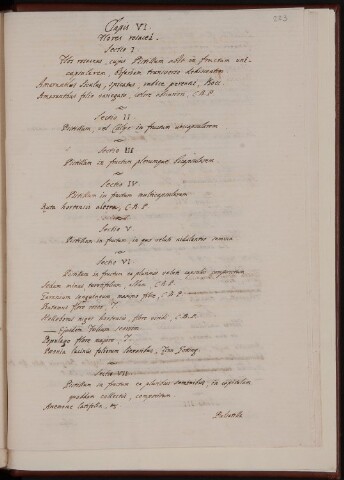 223
Classis VI.
Flores rosacei.
Sectio I
Flos rosaceus, cujus Pistillum abit in fructum uni-
capsularem, bifariam transverse dehiscentem
Amaranthus Siculus, spicatus, radice perenni, Bocc.
Amaranthus folio variegato, C.B.P.
Sectio II
Pistillum, vel Calyx in fructum unicapsularem
Sectio III
Pistillum in fructum plerumque bicapsularem
Sectio IV
Pistillum in fructum multicapsularem
Ruta hortensis altera, C.B.P.
Sectio V
Pistillum in fructum, in quo velut nidulantur semina
Sectio VI
Pistillum in fructum ex pluribus velut capsulis compositum
Sedum minus teretifolium, album, C.B.P.
Geranium sanguineum, maximo flore, C.B.P.
Butomus flore roseo, T.
Helleborus niger hortensis, flore viridi, C.B.P.
— Ejusdem
Populago flore majore, T.
Paeonia laciniis foliorum
Sectio VII
Pistillum in fructum ex pluribus seminibus, in capitulum
quoddam collectis, compositum
Anemone latifolia, &
Pulsatilla